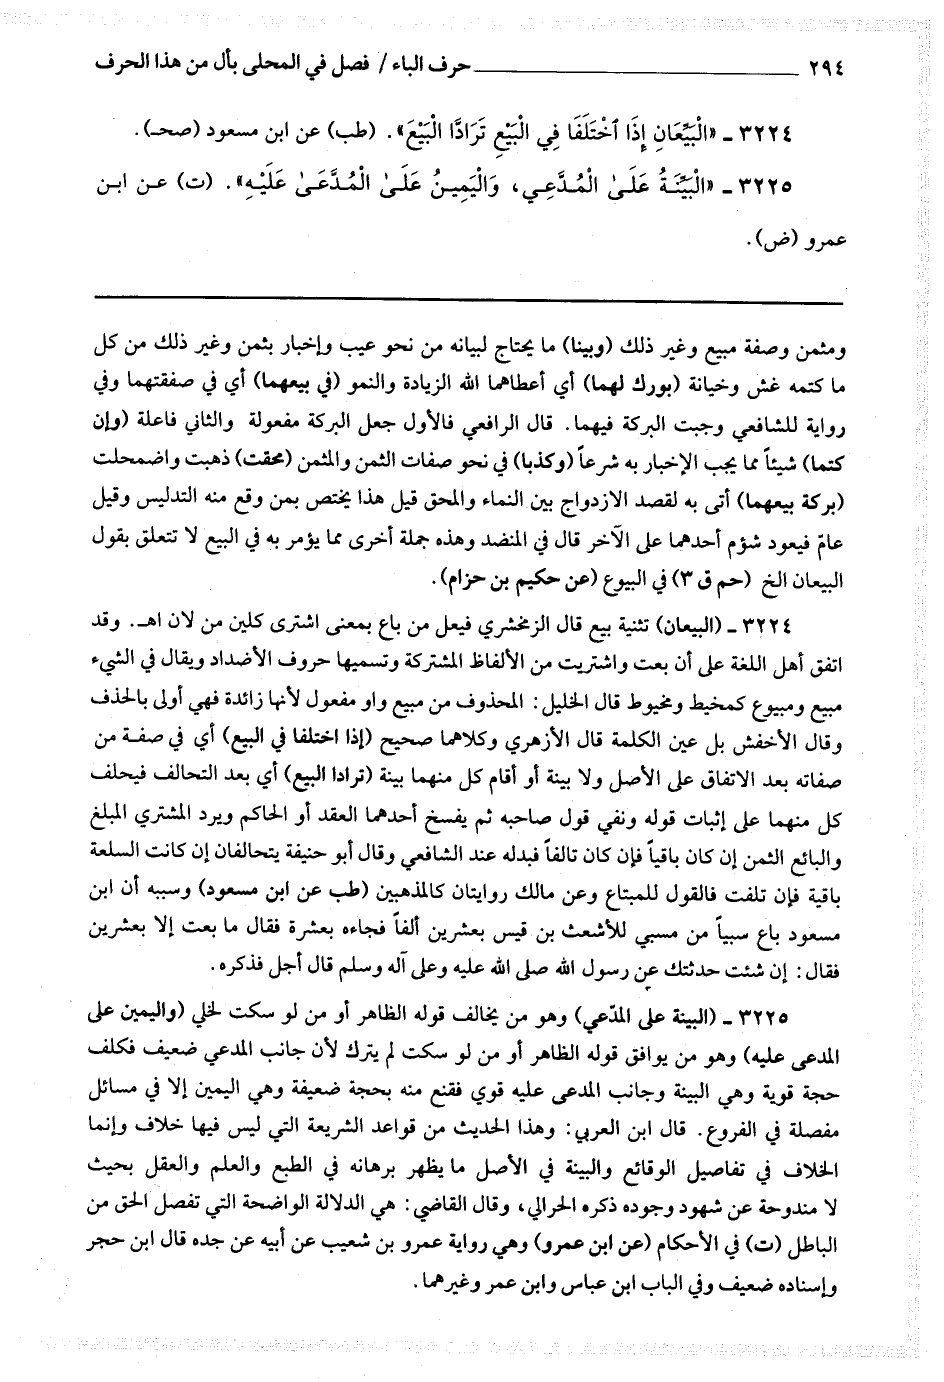 ٢٩٤ ــــــــــــــــــــــــ حرف الباء / فصل في المحلى بأل من هذا الحرف
٣٢٢٤ ـ «الْبَيِّعَانِ إِذَا اخْتَلَفَا فِي الْبَيْعِ تَرَادَّا الْبَيْعَ». (طب) عن ابن مسعود (صحـ).
٣٢٢٥ ـ «الْبَيِّنَةُ عَلَىٰ الْمُدَّعِي، وَالْيَمِينُ عَلَىٰ الْمُدَّعَىٰ عَلَيْهِ». (ت) عن ابن
عمرو (ض).
ومثمن وصفة مبيع وغير ذلك (وبينا) ما يحتاج لبيانه من نحو عيب وإخبار بثمن وغير ذلك من كل
ما كتمه غش وخيانة (بورك لهما) أي أعطاهما الله الزيادة والنمو (في بيعهما) أي في صفقتهما وفي
رواية للشافعي وجبت البركة فيهما. قال الرافعي فالأول جعل البركة مفعولة والثاني فاعلة (وإن
كتما) شيئاً مما يجب الإخبار به شرعاً (وكذبا) في نحو صفات الثمن والمثمن (محقت) ذهبت واضمحلت
(بركة بيعهما) أتى به لقصد الازدواج بين النماء والمحق قيل هذا يختص بمن وقع منه التدليس وقيل
عامّ فيعود شؤم أحدهما على الآخر قال في المنضد وهذه جملة أخرى مما يؤمر به في البيع لا تتعلق بقول
البيعان الخ (حم ق ٣) في البيوع (عن حكيم بن حزام).
٣٢٢٤ ـ (البيعان) تثنية بيع قال الزمخشري فيعل من باع بمعنى اشترى كلين من لان اهـ. وقد
اتفق أهل اللغة على أن بعت واشتريت من الألفاظ المشتركة وتسميها حروف الأضداد ويقال في الشيء
مبيع ومبيوع كمخيط ومخيوط قال الخليل: المحذوف من مبيع واو مفعول لأنها زائدة فهي أولى بالحذف
وقال الأخفش بل عين الكلمة قال الأزهري وكلاهما صحيح (إذا اختلفا في البيع) أي في صفة من
صفاته بعد الاتفاق على الأصل ولا بينة أو أقام كل منهما بينة (ترادا البيع) أي بعد التحالف فيحلف
كل منهما على إثبات قوله ونفي قول صاحبه ثم يفسخ أحدهما العقد أو الحاكم ويرد المشتري المبلغ
والبائع الثمن إن كان باقياً فإن كان تالفاً فبدله عند الشافعي وقال أبو حنيفة يتحالفان إن كانت السلعة
باقية فإن تلفت فالقول للمبتاع وعن مالك روايتان كالمذهبين (طب عن ابن مسعود) وسببه أن ابن
مسعود باع سبياً من مسبي للأشعث بن قيس بعشرين ألفاً فجاءه بعشرة فقال ما بعت إلا بعشرين
فقال: إن شئت حدثتك عن رسول الله صلى الله عليه وعلى آله وسلم قال أجل فذكره.
٣٢٢٥ ـ (البينة على المدّعي) وهو من يخالف قوله الظاهر أو من لو سكت لخلي (واليمين على
المدعى عليه) وهو من يوافق قوله الظاهر أو من لو سكت لم يترك لأن جانب المدعي ضعيف فكلف
حجة قوية وهي البينة وجانب المدعى عليه قوي فقنع منه بحجة ضعيفة وهي اليمين إلا في مسائل
مفصلة في الفروع. قال ابن العربي: وهذا الحديث من قواعد الشريعة التي ليس فيها خلاف وإنما
الخلاف في تفاصيل الوقائع والبينة في الأصل ما يظهر برهانه في الطبع والعلم والعقل بحيث
لا مندوحة عن شهود وجوده ذكره الحرالي، وقال القاضي: هي الدلالة الواضحة التي تفصل الحق من
الباطل (ت) في الأحكام (عن ابن عمرو) وهي رواية عمرو بن شعيب عن أبيه عن جده قال ابن حجر
وإسناده ضعيف وفي الباب ابن عباس وابن عمر وغيرهما.